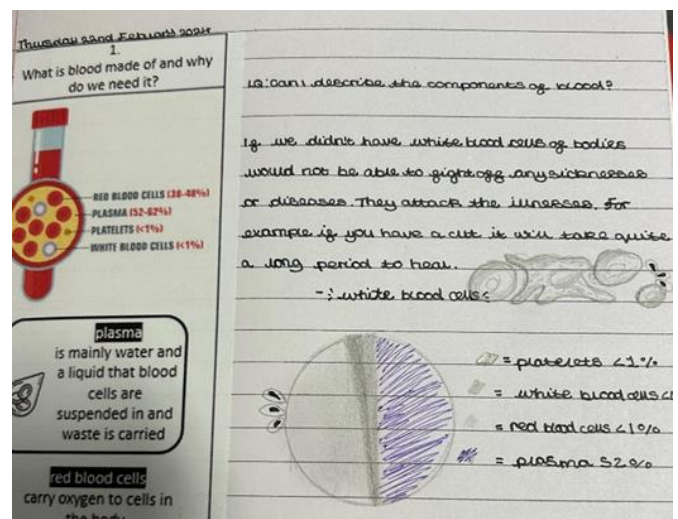 Thursday 22nd February 2024
1.
What is blood made of and why
do we need it?
RED BLOOD CELLS (38-48%)
PLASMA (52-62%)
PLATELETS (<1%)
WHITE BLOOD CELLS (<1%)
plasma
is mainly water and
a liquid that blood
cells are
suspended in and
waste is carried
red blood cells
carry oxygen to cells in
the body
LQ: can I describe the components of blood?
If we didn't have white blood cells of bodies
would not be able to fight off any sicknesses
or diseases. They attack the illnesses. For
example if you have a cut it will take quite
a long period to heal.
-: white blood cells:
= platelets <1%
= white blood cells <
= red blood cells <1%
= plasma 52%